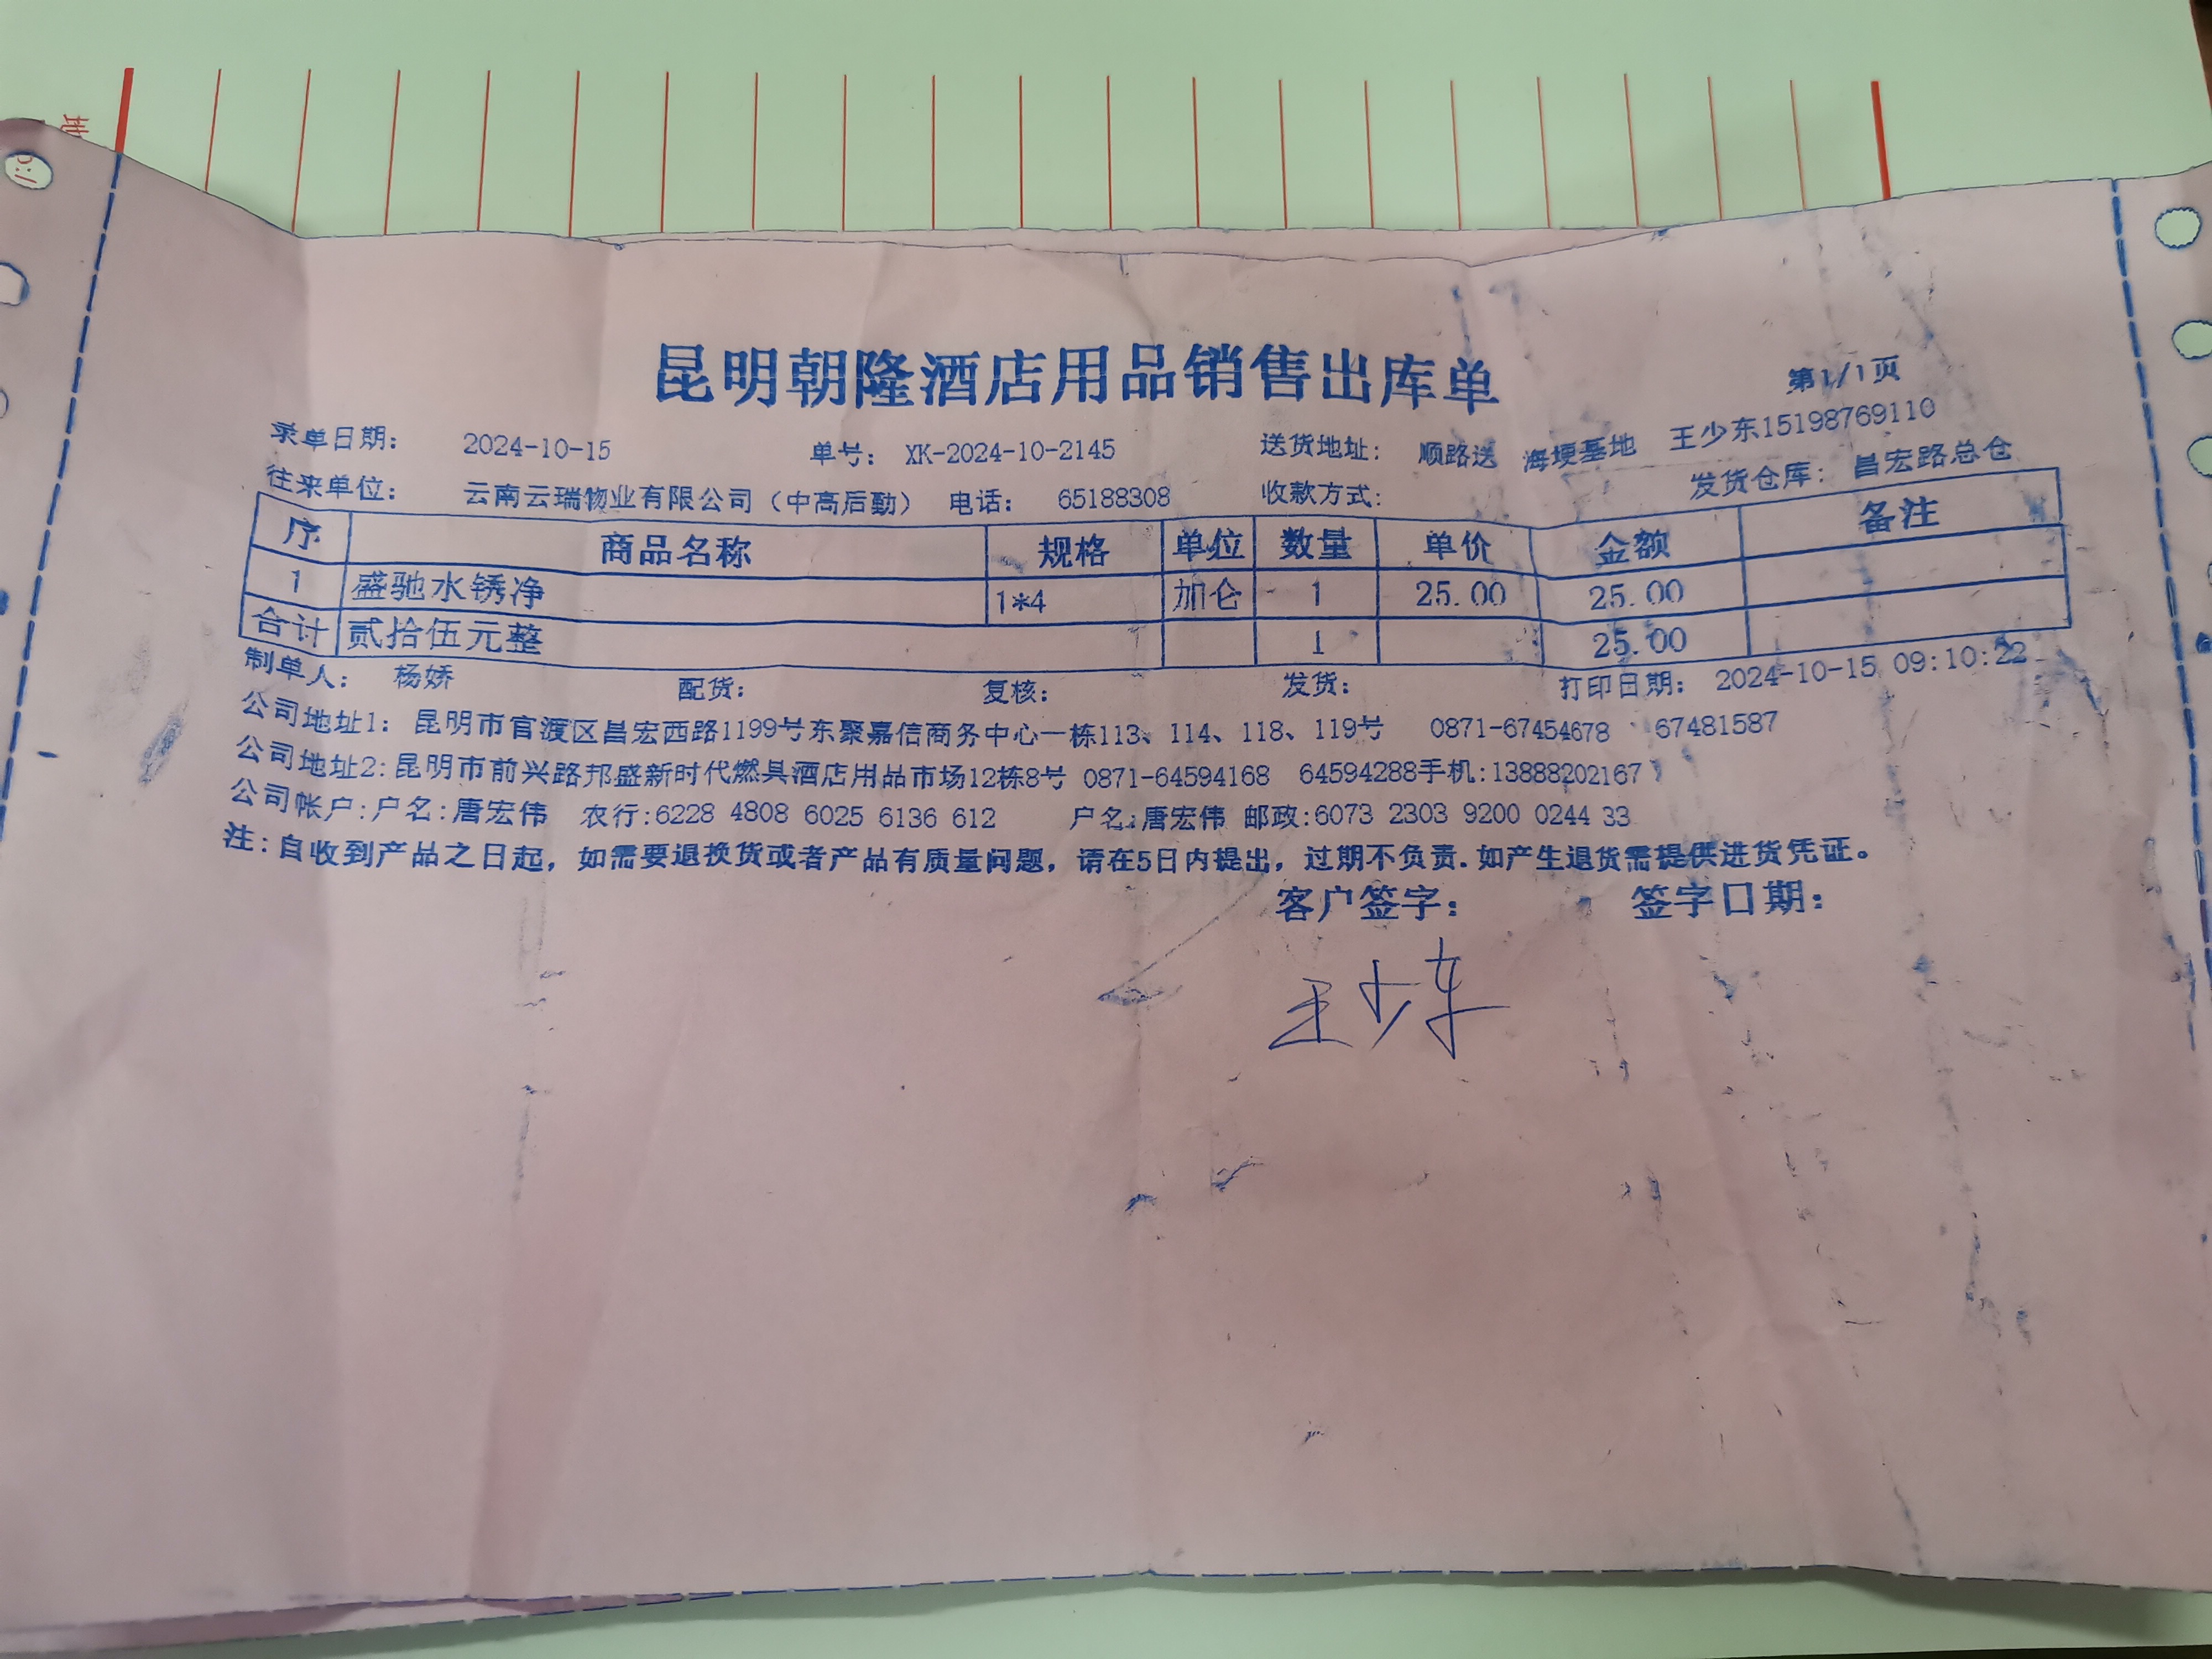 昆明朝隆酒店用品销售出库单
第1/1页
录单日期： 2024-10-15 单号： XK-2024-10-2145 送货地址： 顺路送 海埂基地 王少东15198769110
往来单位： 云南云瑞物业有限公司（中高后勤） 电话： 65188308 收款方式： 发货仓库： 昌宏路总仓
序 商品名称 规格 单位 数量 单价 金额 备注
1 盛驰水锈净 1*4 加仑 1 25.00 25.00
合计 贰拾伍元整 1 25.00
制单人： 杨娇 配货： 复核： 发货： 打印日期： 2024-10-15 09:10:22
公司地址1： 昆明市官渡区昌宏西路1199号东聚嘉信商务中心一栋113、114、118、119号 0871-67454678 67481587
公司地址2:昆明市前兴路邦盛新时代燃具酒店用品市场12栋8号 0871-64594168 64594288手机:13888202167
公司帐户:户名:唐宏伟 农行:6228 4808 6025 6136 612 户名:唐宏伟 邮政:6073 2303 9200 0244 33
注:自收到产品之日起，如需要退换货或者产品有质量问题，请在5日内提出，过期不负责.如产生退货需提供进货凭证。
客户签字： 签字日期：
王少东